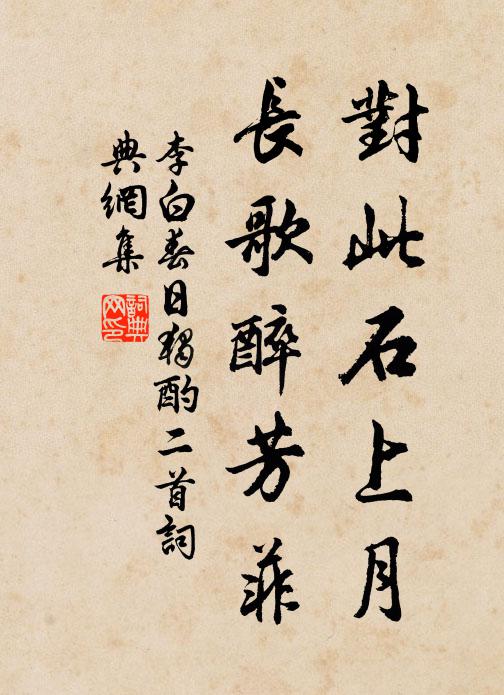 對此石上月
長歌醉芳菲
李白春日獨酌二首詞
典網集
詞典网印